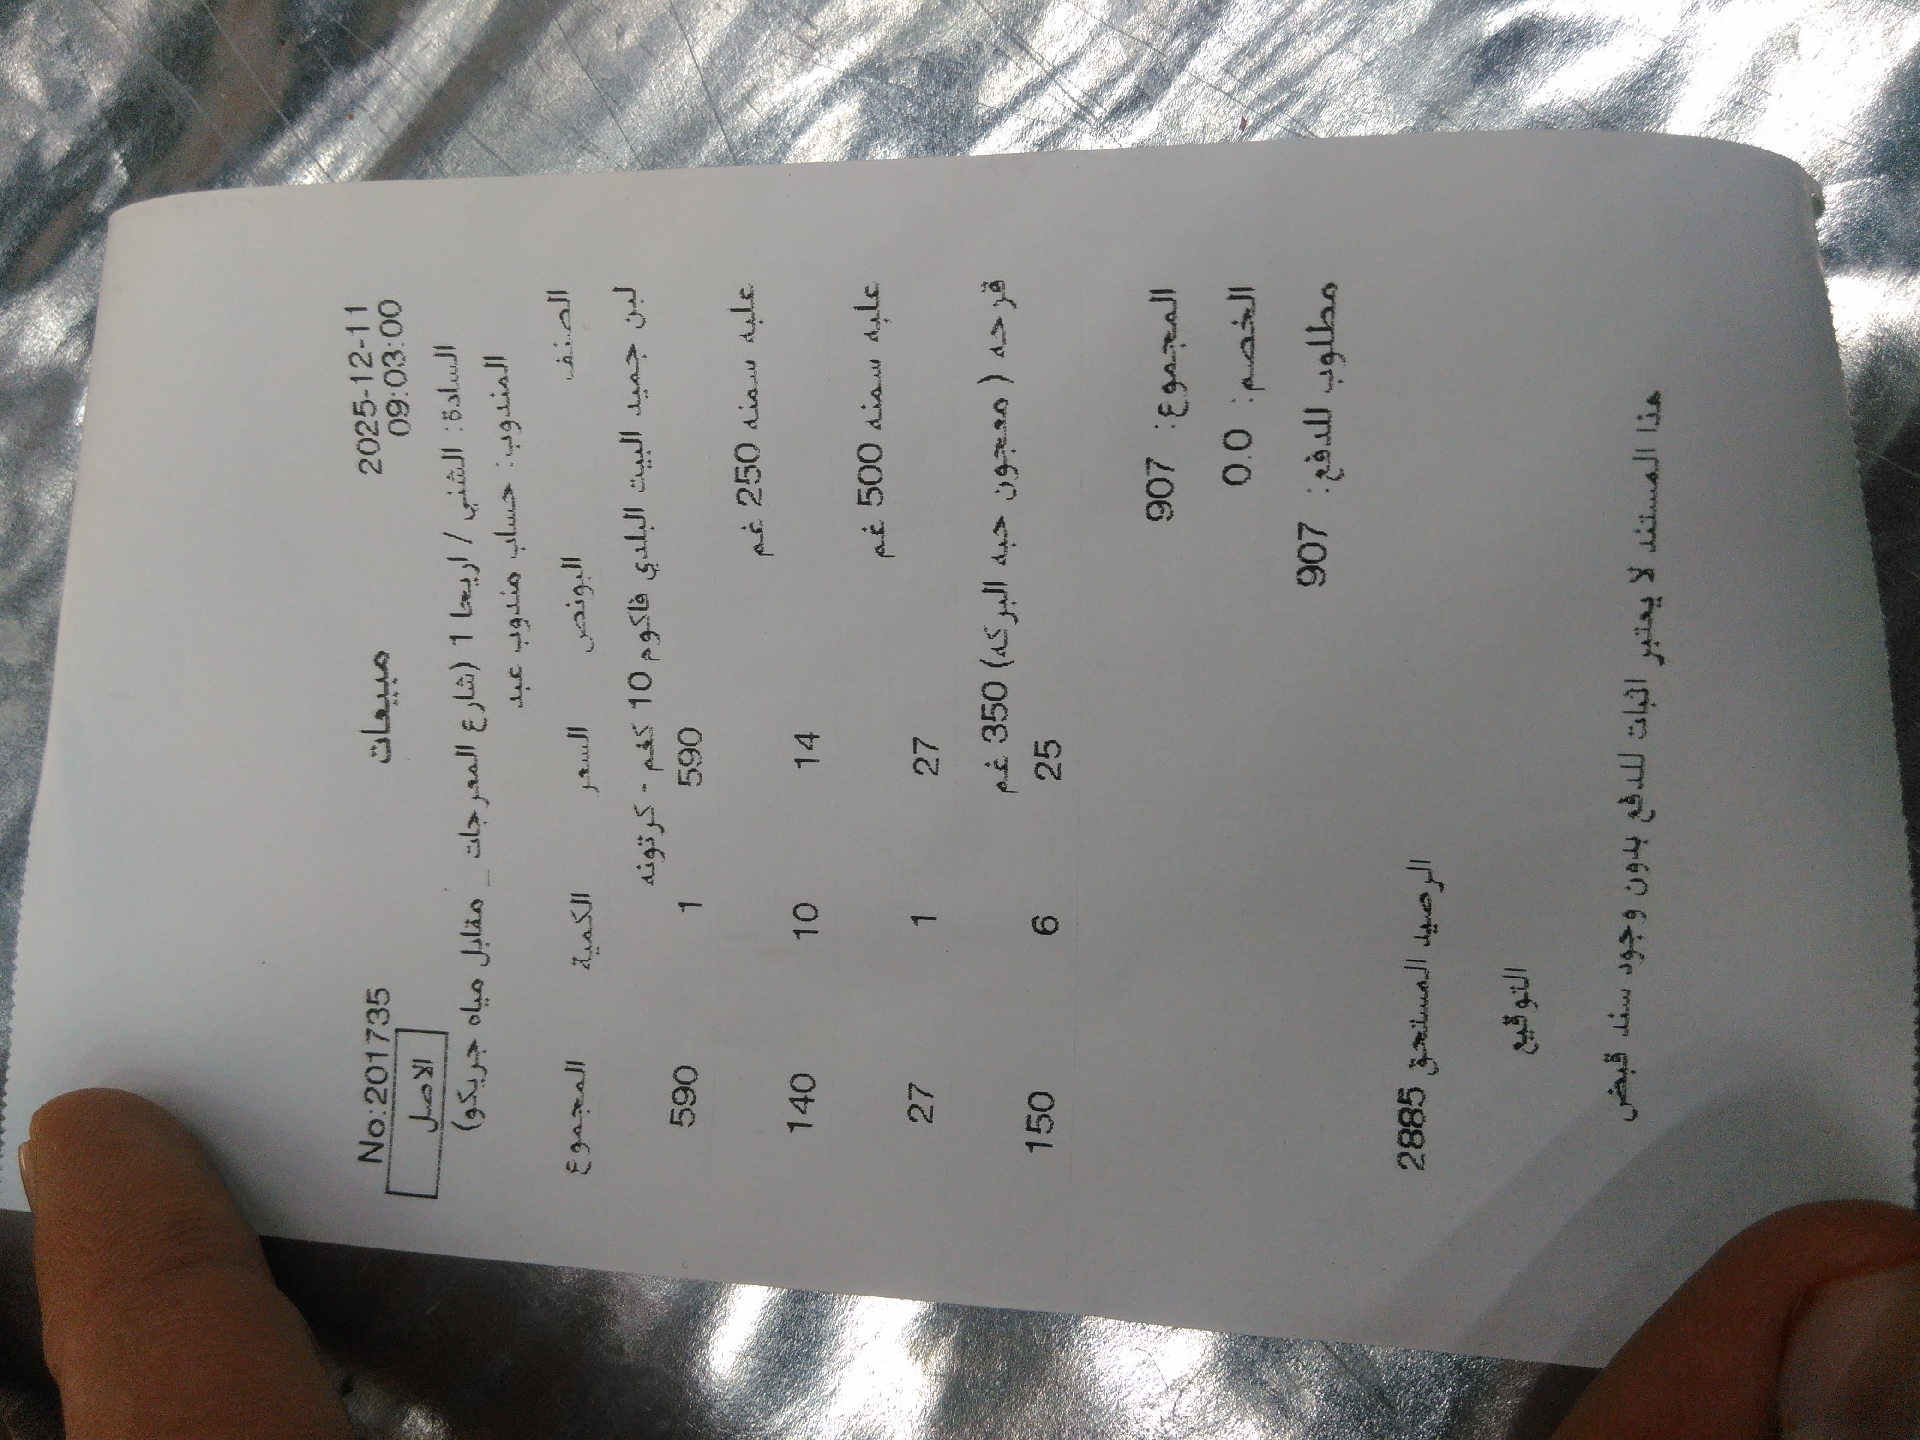 No:201735 مبيعات 2025-12-11
الاصل 09:03:00
السادة: الشني / اريحا 1 (شارع المعرجات _ مقابل مياه جريكو)
المندوب: حساب مندوب عبد
الصنف البونص السعر الكمية المجموع
لبن جميد البيت البلدي فاكوم 10 كغم - كرتونه
590 1 590
علبه سمنه 250 غم
14 10 140
علبه سمنه 500 غم
27 1 27
قزحه ( معجون حبه البركه) 350 غم
25 6 150
المجموع: 907
الخصم: 0.0
مطلوب للدفع: 907
الرصيد المستحق 2885
التوقيع
هذا المستند لا يعتبر اثبات للدفع بدون وجود سند قبض